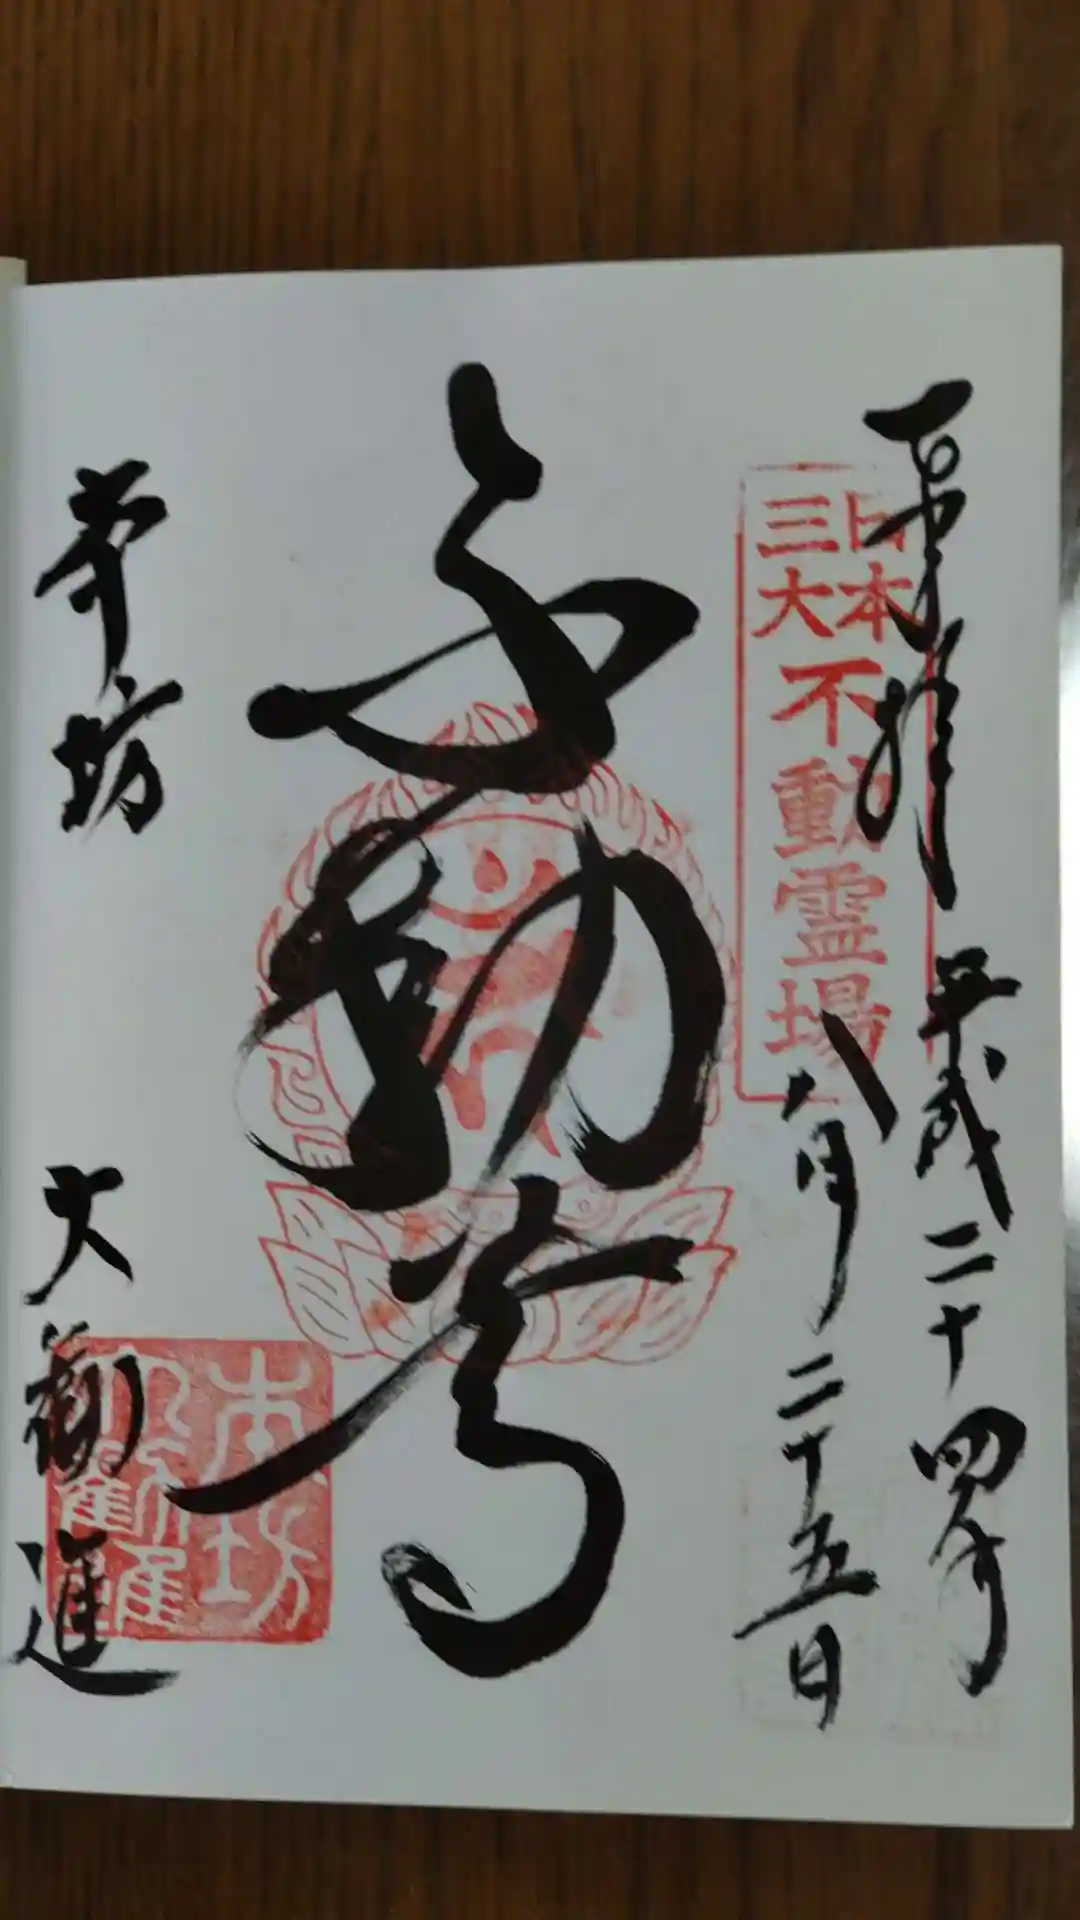 奉拝 平成二十四年
八月二十五日
日本
三大
不動霊場
不動尊
本坊 大勧進
本坊